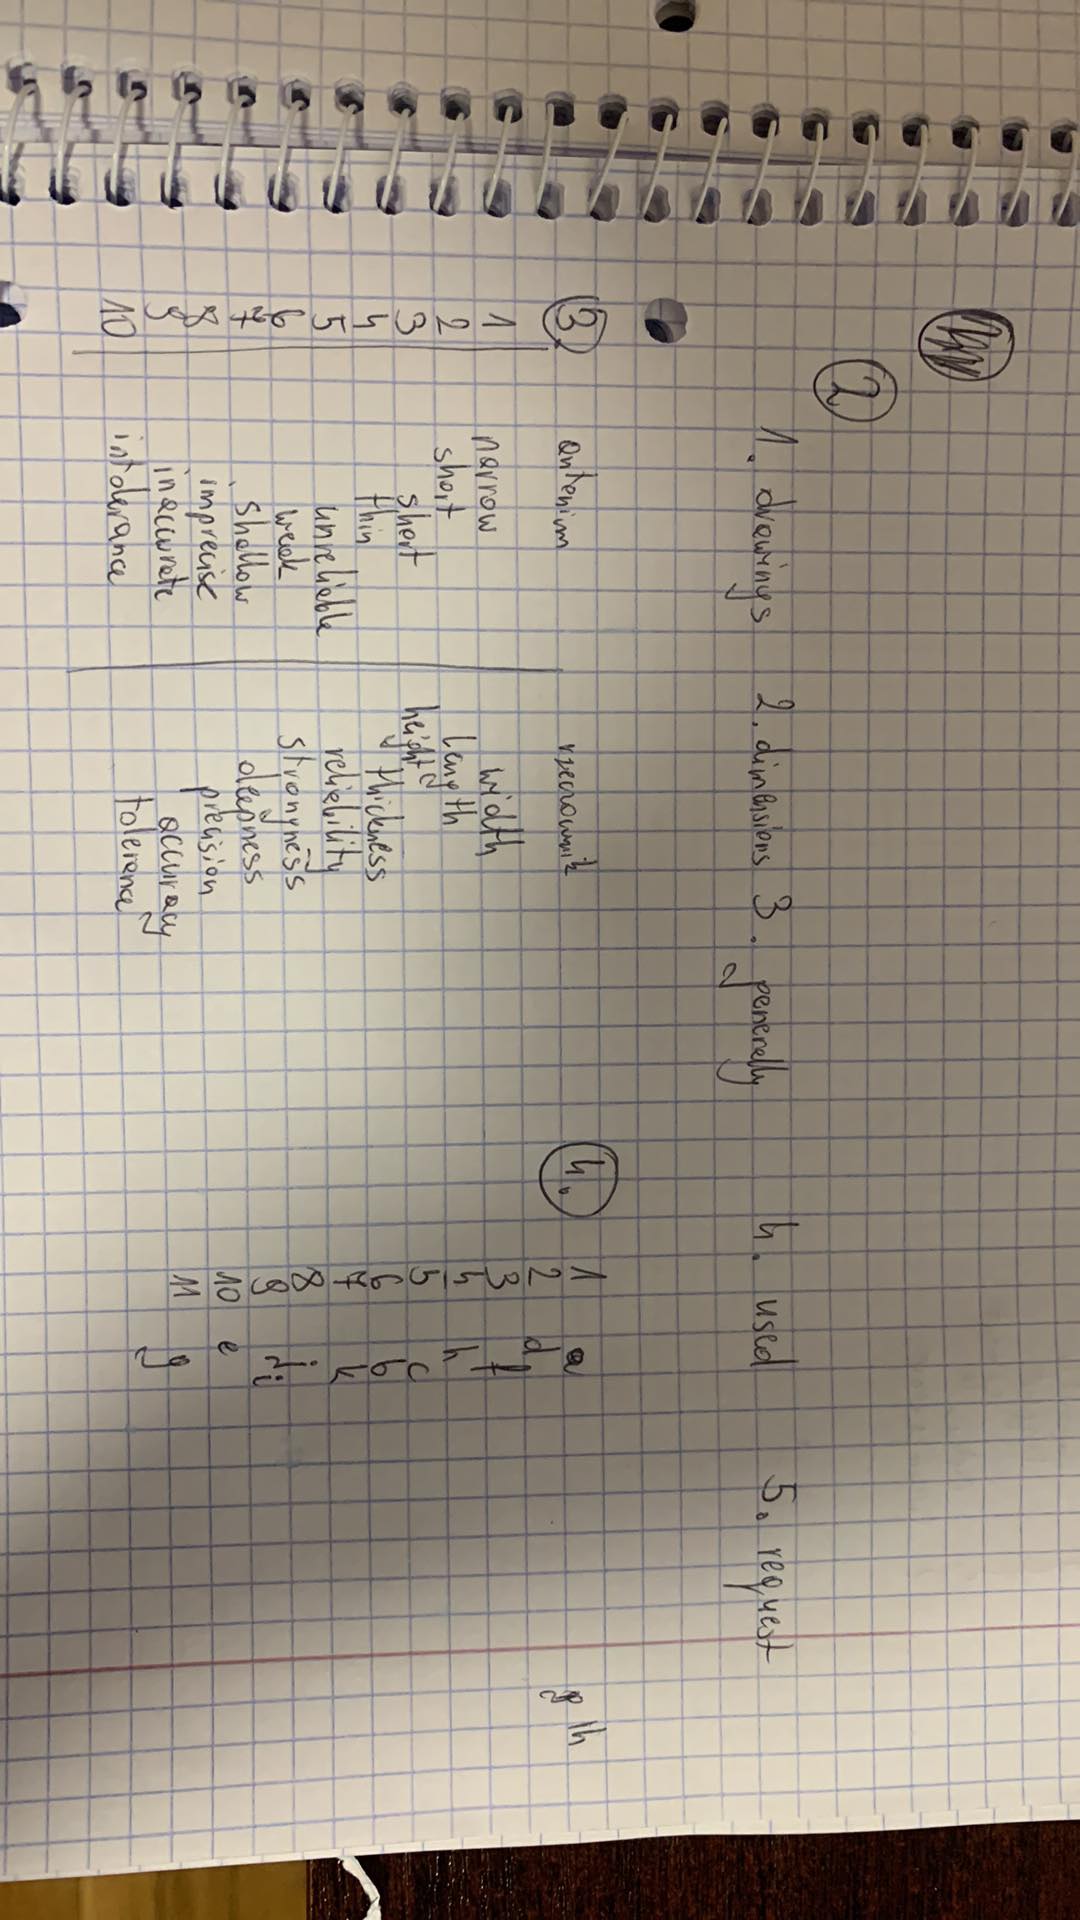 2
1. drawings 2. dimensions 3. generally 4. used 5. request
3. antonium rzeczownik
1 narrow width
2 short length
3 short height
4 thin thickness
5 unreliable reliability
6 weak strongness
7 shallow deepness
8 imprecise precision
9 inaccurate accuracy
10 intolerance tolerance
4.
1 a
2 d
3 f
4 h
5 c
6 b
7 k
8 j
9 i
10 e
11 g